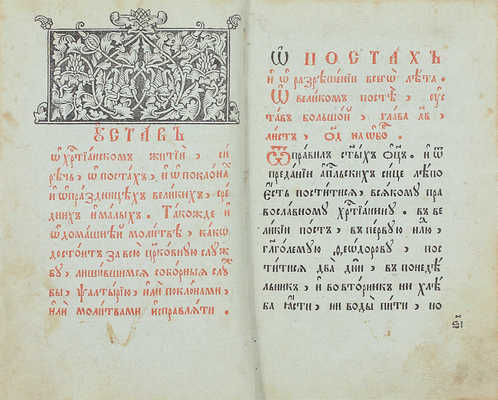 ᲂУСТА́ВЪ
ѡ҆ хрⷭ҇тїа́нскомъ житїѝ, си́
рѣчь, ѡ҆ поста́хъ, и҆ ѡ҆ покло́на
и҆ ѡ҆ пра́здницѣхъ вели́кихъ, сре́
днихъ и҆ ма́лыхъ. Та́кожде и҆
ѡ҆ дома́шнеи моли́твѣ, ка́кѡ
досто́итъ за всю̀ цр҃ко́вную слꙋ́ж
бꙋ, лиши́вшимсѧ собо́рныѧ слꙋ́
бы, ѱалты́рїю, и҆лѝ покло́нами,
и҆лѝ моли́твами и҆справлѧ́ти.
Ѡ҆ ПОСТА́ХЪ
и҆ ѡ҆ разрѣше́нїи всегѡ̀ лѣ́та.
Ѡ҆ вели́комъ постѣ̀, ᲂу҆с
та́въ большо́й, глава̀
ли́стъ, ѻд на ѡ҆бо
Ѿ пра́вилъ ст҃ы́хъ ѻ҆ц҃ъ. и҆ ѿ
преда́нїи а҆пⷭ҇льскихъ си́це лѣ́по
є҆́сть пости́тисѧ, всѧ́комꙋ пра
восла́вномꙋ хрⷭ҇тїа́нинꙋ. в̾ ве
ли́кїи по́стъ, в̾ пе́рвꙋю нлⷣю,
гл҃го́лемꙋю ѳео́доровꙋ, пос
ти́тисѧ два̀ дни̑, в̾ понедѣ́
льникъ, и҆ во вто́рникъ ни хлѣ́
ба ꙗ҆́сти, ни воды̀ пи́ти, но